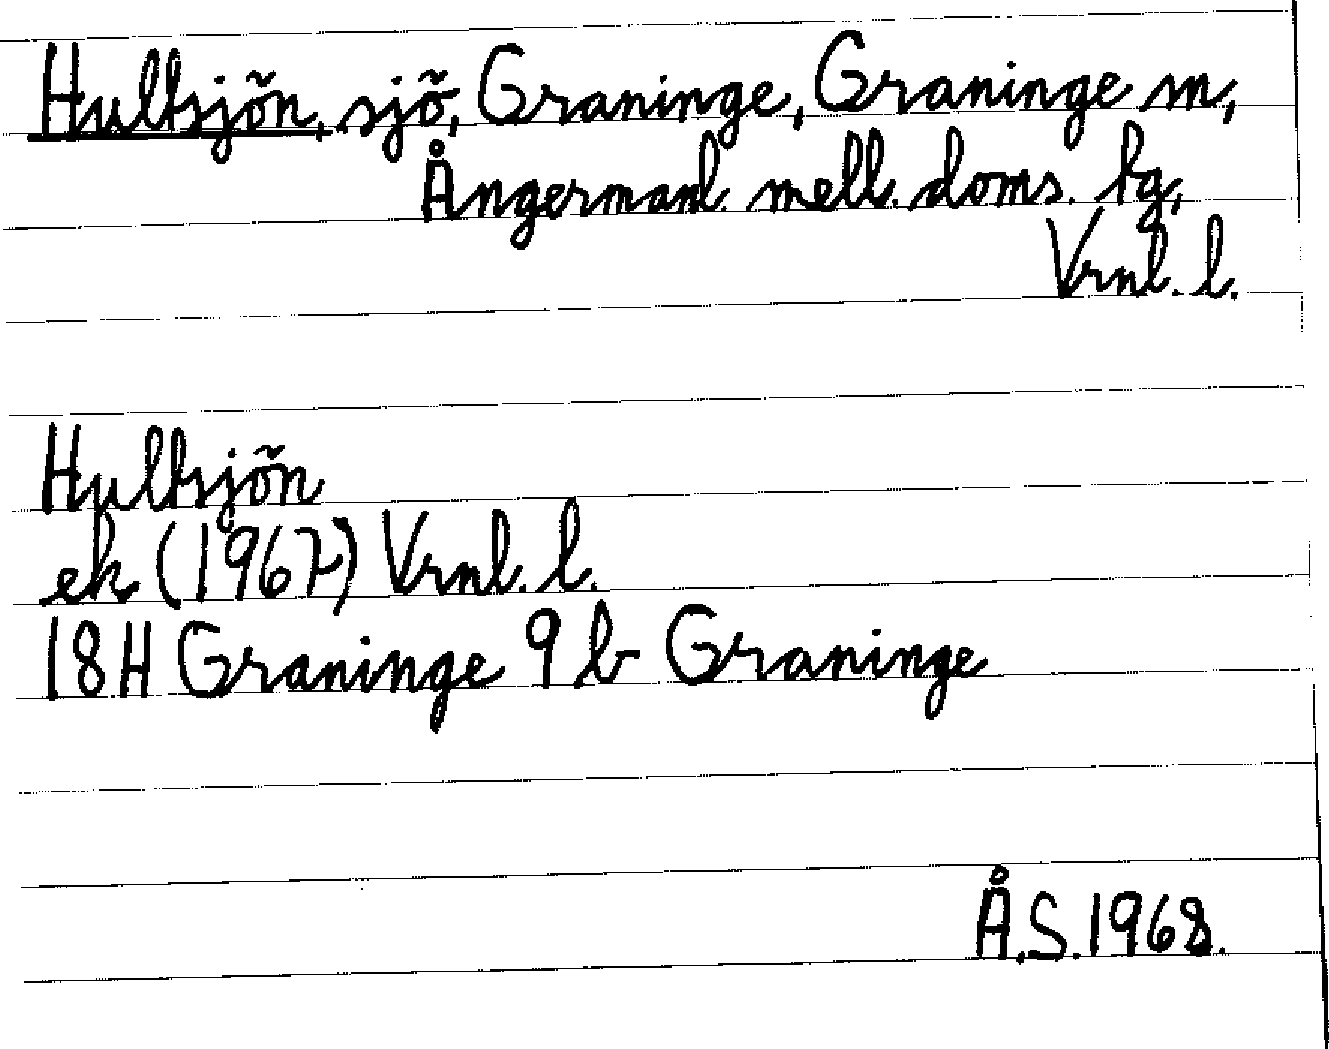 Hultsjön, sjö, Graninge, Graninge sn,
Ångermanl. mell. doms. tg,
Vrnl. l.
Hultsjön
ek (1967) Vrnl. l.
18H Graninge 9 b Graninge
Å.S. 1968.